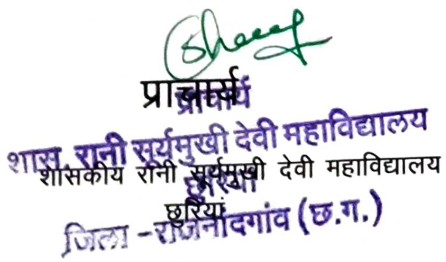 प्राचार्य
प्राचार्य
शास. रानी सूर्यमुखी देवी महाविद्यालय
शासकीय रानी सूर्यमुखी देवी महाविद्यालय
छुरिया
छुरियां
जिला - राजनांदगांव (छ.ग.)